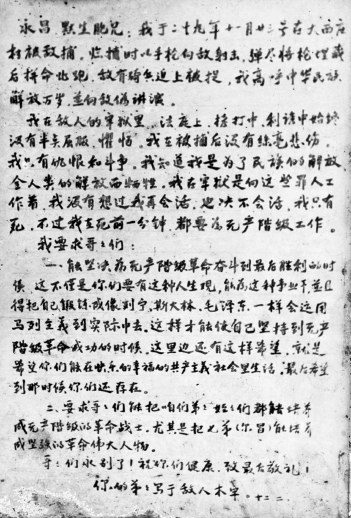 永昌、默生胞兄：我于二十九年十一月廿三号在大西庄
村被敌捕。临捕时以手枪向敌射击，弹尽将枪埋藏
后拼命北跑，敌有骑兵追上被捉，我高呼中华民族
解放万岁，并向敌伪讲演。
我在敌人的牢狱里，法庭上，榜打中，利诱中始终
没有半点屈服、惧怕。我在被捕后没有丝毫悲伤。
我只有仇恨和斗争。我知道我是为了民族的解放
全人类的解放而牺牲。我在牢狱是向这些罪人工
作着，我没有想过我再会活，也决不会活，我只有
死，不过我在死前一分钟，都要为无产阶级工作。
我要求哥：们：
一、能坚决为无产阶级革命奋斗到最后胜利的时
候，这不仅是你们要有这种人生观，能为这种事业干，并且
得把自己锻炼成像列宁、斯大林、毛泽东一样会运用
马列主义到实际中去，这样才能使自己坚持到无产
阶级革命成功的时候，这里边还有这样希望，就是
希望你们能在快乐的幸福的共产主义社会里生活，最后希望
到那时候你们还存在。
二、要求哥：们能把咱们弟：妹：们都能培养
成无产阶级的革命战士，尤其是把七弟（你
昌）能培养
成坚强的革命伟大人物。
哥：们永别了！祝你们健康，致最后敬礼！
你的弟：写于敌人木牢。十二、二、